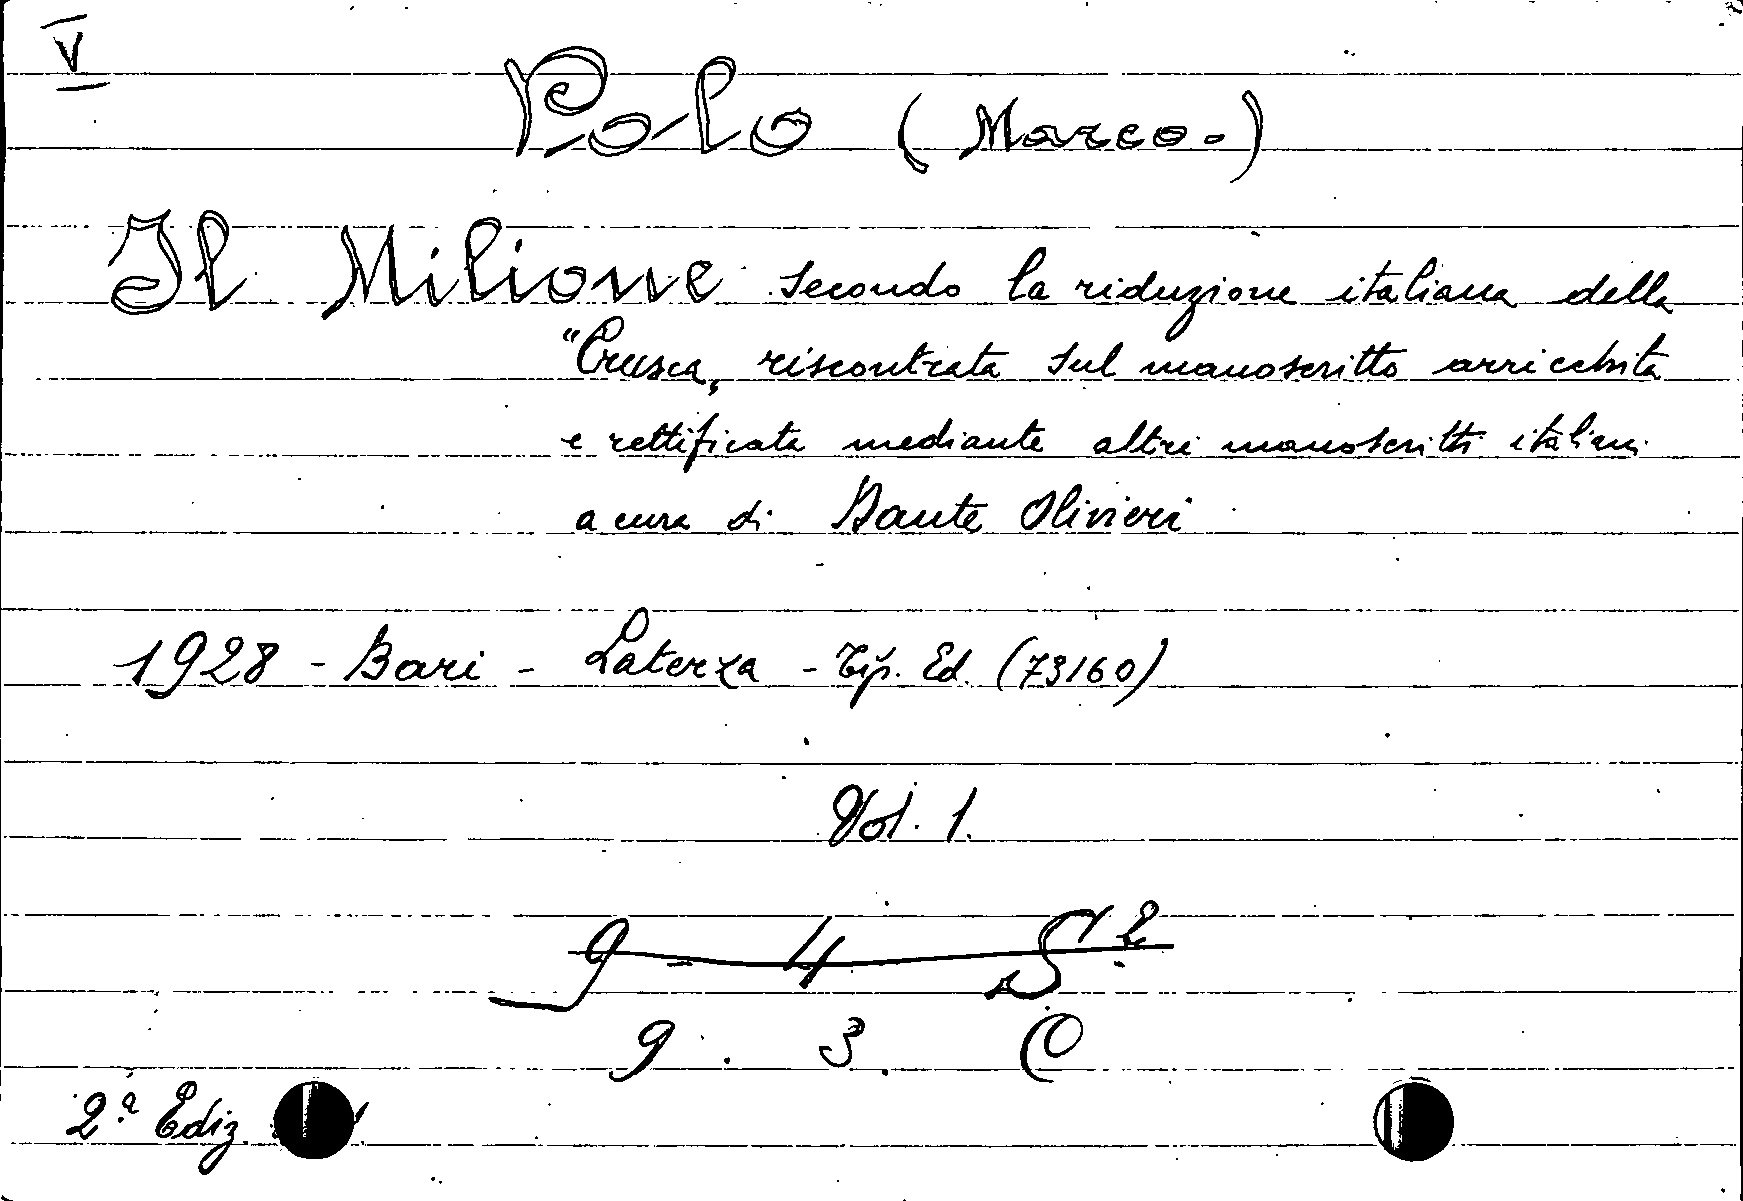 V
Polo (Marco-)
Il Milione secondo la riduzione italiana della
"Crusca, riscontrata sul manoscritto arricchita
e rettificata mediante altri manoscritti italiani
a cura di Dante Olivieri
1928 - Bari - Laterza - Tip. Ed. (73160)
Vol. 1.
9 - 4
9. 3. O
2ª Ediz.